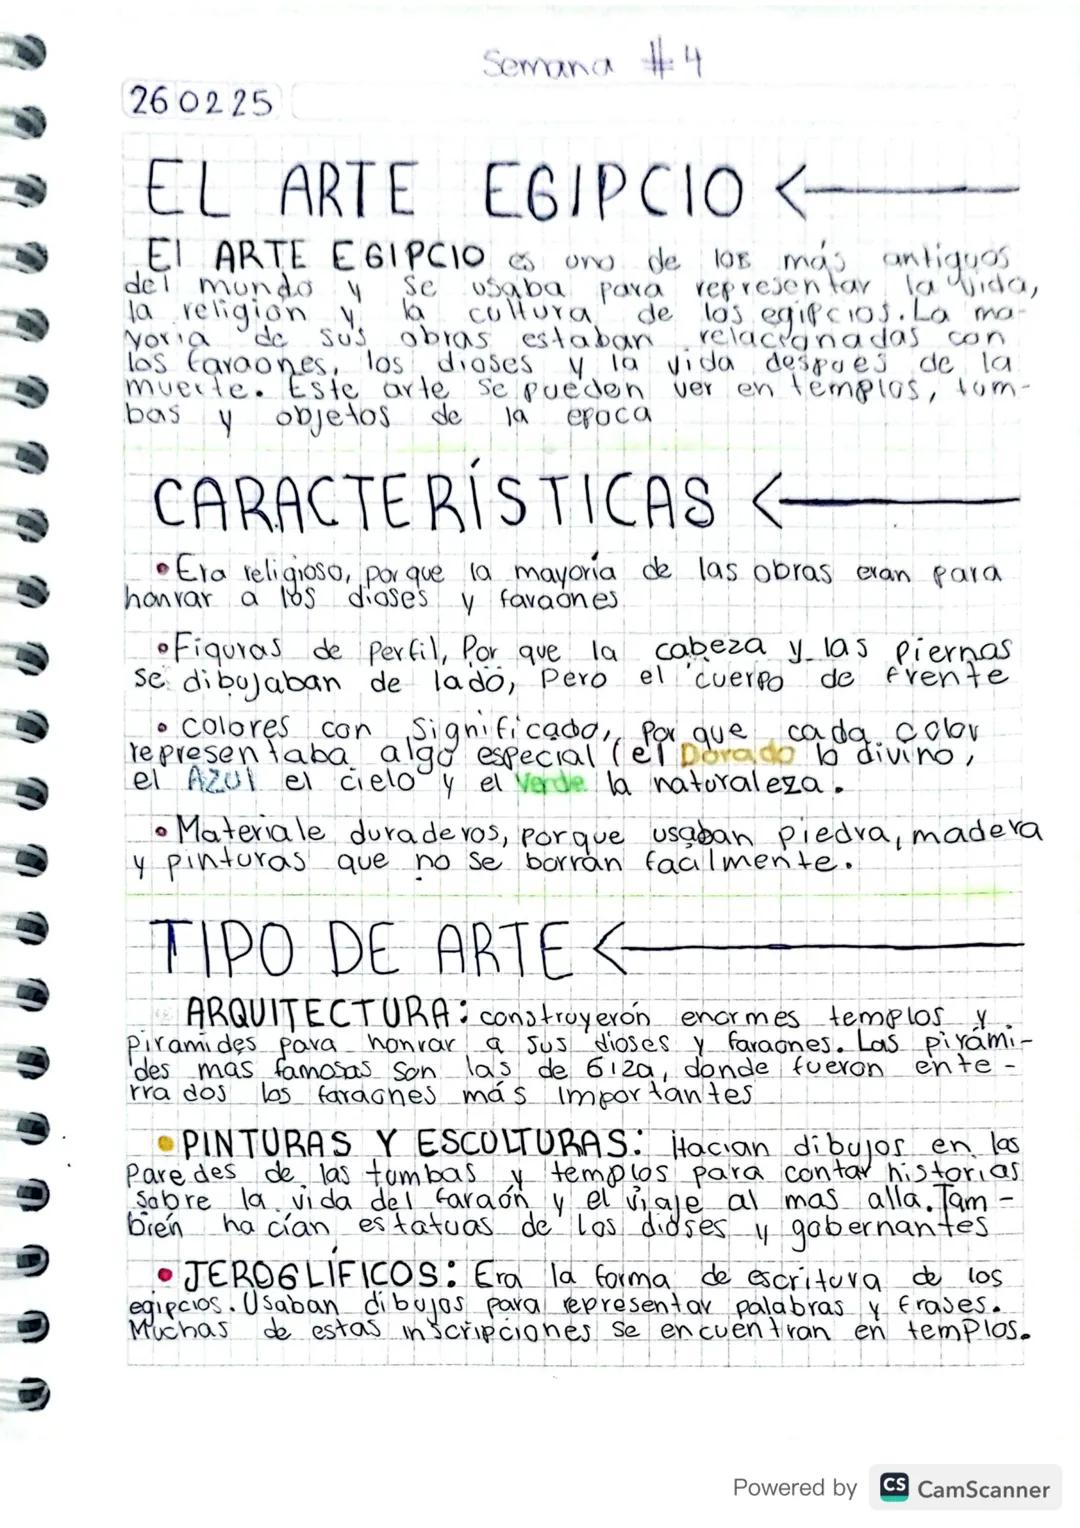 Semana #4
260225
EL ARTE EGIPCIO
El ARTE EGIPCIO es uno de los más antiguos
del mundo y se usaba para representar la vida,
la religion y la cultura de los egipcios. La ma-
yoria de sus obras estaban relacionadas con
los faraones, los dioses y la vida despues de la
muerte. Este arte se pueden ver en templos, tum-
bas y objetos de la epoca
CARACTERÍSTICAS
• Era religioso, porque la mayoría de las obras eran para
honrar a los dioses y faraones
• Figuras de perfil, Por que la cabeza y las piernas
se dibujaban de lado, Pero el cuerpo de frente
• colores con significado, Por que cada color
representaba algo especial (el Dorado lo divino,
el AZUl el cielo y el Verde la naturaleza.
• Materiale duraderos, porque usaban piedra, madera
y pinturas que no se borran facilmente.
TIPO DE ARTE
ARQUITECTURA: construyerón enormes templos y
piramides para honrar a sus dioses y faraones. Las pirámi-
des mas famosas son las de Giza, donde fueron ente-
rrados los faraones más importantes
• PINTURAS Y ESCULTURAS: Hacian dibujos en las
Paredes de las tumbas y templos para contar historias
sobre la vida del faraón y el viaje al mas alla. Tam-
bién hacían estatuas de los dioses y gobernantes
• JEROGLÍFICOS: Era la forma de escritura de los
egipcios. Usaban dibujos para representar palabras y frases.
Muchas de estas inscripciones se encuentran en templos.
Powered by CS CamScanner